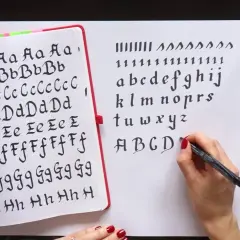 Aa Aa Aa
BbBbBb
CcCcCcC
DdDdDd
Ee Ee Ee
FfFfFf
GgGgGg
HhHhH
abcdefghij
klmnopqrs
tuvwxyz
ABCD